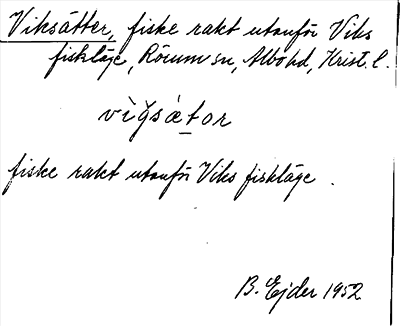 Viksätter, fiske rakt utanför Viks
fiskläge, Rörum sn, Albo hd, Krist. l.
vìğsætor
fiske rakt utanför Viks fiskläge.
B. Ejder 1952